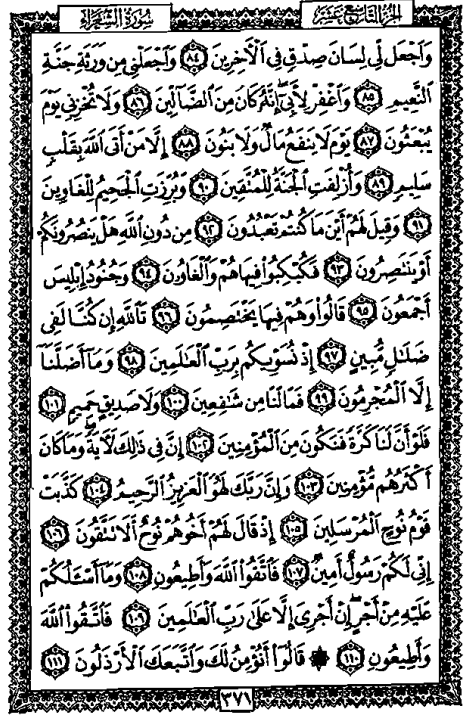 سُورَةُ الشُّعَرَاءِ الجُزءُ التَّاسِعُ عَشَرَ
وَٱجْعَل لِّى لِسَانَ صِدْقٍ فِى ٱلْـَٔاخِرِينَ ٨٤ وَٱجْعَلْنِى مِن وَرَثَةِ جَنَّةِ
ٱلنَّعِيمِ ٨٥ وَٱغْفِرْ لِأَبِىٓ إِنَّهُۥ كَانَ مِنَ ٱلضَّآلِّينَ ٨٦ وَلَا تُخْزِنِى يَوْمَ
يُبْعَثُونَ ٨٧ يَوْمَ لَا يَنفَعُ مَالٌ وَلَا بَنُونَ ٨٨ إِلَّا مَنْ أَتَى ٱللَّهَ بِقَلْبٍ
سَلِيمٍ ٨٩ وَأُزْلِفَتِ ٱلْجَنَّةُ لِلْمُتَّقِينَ ٩٠ وَبُرِّزَتِ ٱلْجَحِيمُ لِلْغَاوِينَ
٩١ وَقِيلَ لَهُمْ أَيْنَ مَا كُنتُمْ تَعْبُدُونَ ٩٢ مِن دُونِ ٱللَّهِ هَلْ يَنصُرُونَكُمْ
أَوْ يَنتَصِرُونَ ٩٣ فَكُبْكِبُوا۟ فِيهَا هُمْ وَٱلْغَاوُۥنَ ٩٤ وَجُنُودُ إِبْلِيسَ
أَجْمَعُونَ ٩٥ قَالُوا۟ وَهُمْ فِيهَا يَخْتَصِمُونَ ٩٦ تَٱللَّهِ إِن كُنَّا لَفِى
ضَلَٰلٍ مُّبِينٍ ٩٧ إِذْ نُسَوِّيكُم بِرَبِّ ٱلْعَٰلَمِينَ ٩٨ وَمَآ أَضَلَّنَآ
إِلَّا ٱلْمُجْرِمُونَ ٩٩ فَمَا لَنَا مِن شَٰفِعِينَ ١٠٠ وَلَا صَدِيقٍ حَمِيمٍ ١٠١
فَلَوْ أَنَّ لَنَا كَرَّةً فَنَكُونَ مِنَ ٱلْمُؤْمِنِينَ ١٠٢ إِنَّ فِى ذَٰلِكَ لَـَٔايَةً وَمَا كَانَ
أَكْثَرُهُم مُّؤْمِنِينَ ١٠٣ وَإِنَّ رَبَّكَ لَهُوَ ٱلْعَزِيزُ ٱلرَّحِيمُ ١٠٤ كَذَّبَتْ
قَوْمُ نُوحٍ ٱلْمُرْسَلِينَ ١٠٥ إِذْ قَالَ لَهُمْ أَخُوهُمْ نُوحٌ أَلَا تَتَّقُونَ ١٠٦
إِنِّى لَكُمْ رَسُولٌ أَمِينٌ ١٠٧ فَٱتَّقُوا۟ ٱللَّهَ وَأَطِيعُونِ ١٠٨ وَمَآ أَسْـَٔلُكُمْ
عَلَيْهِ مِنْ أَجْرٍ إِنْ أَجْرِىَ إِلَّا عَلَىٰ رَبِّ ٱلْعَٰلَمِينَ ١٠٩ فَٱتَّقُوا۟ ٱللَّهَ
وَأَطِيعُونِ ١١٠ ۞ قَالُوٓا۟ أَنُؤْمِنُ لَكَ وَٱتَّبَعَكَ ٱلْأَرْذَلُونَ ١١١
٣٧١